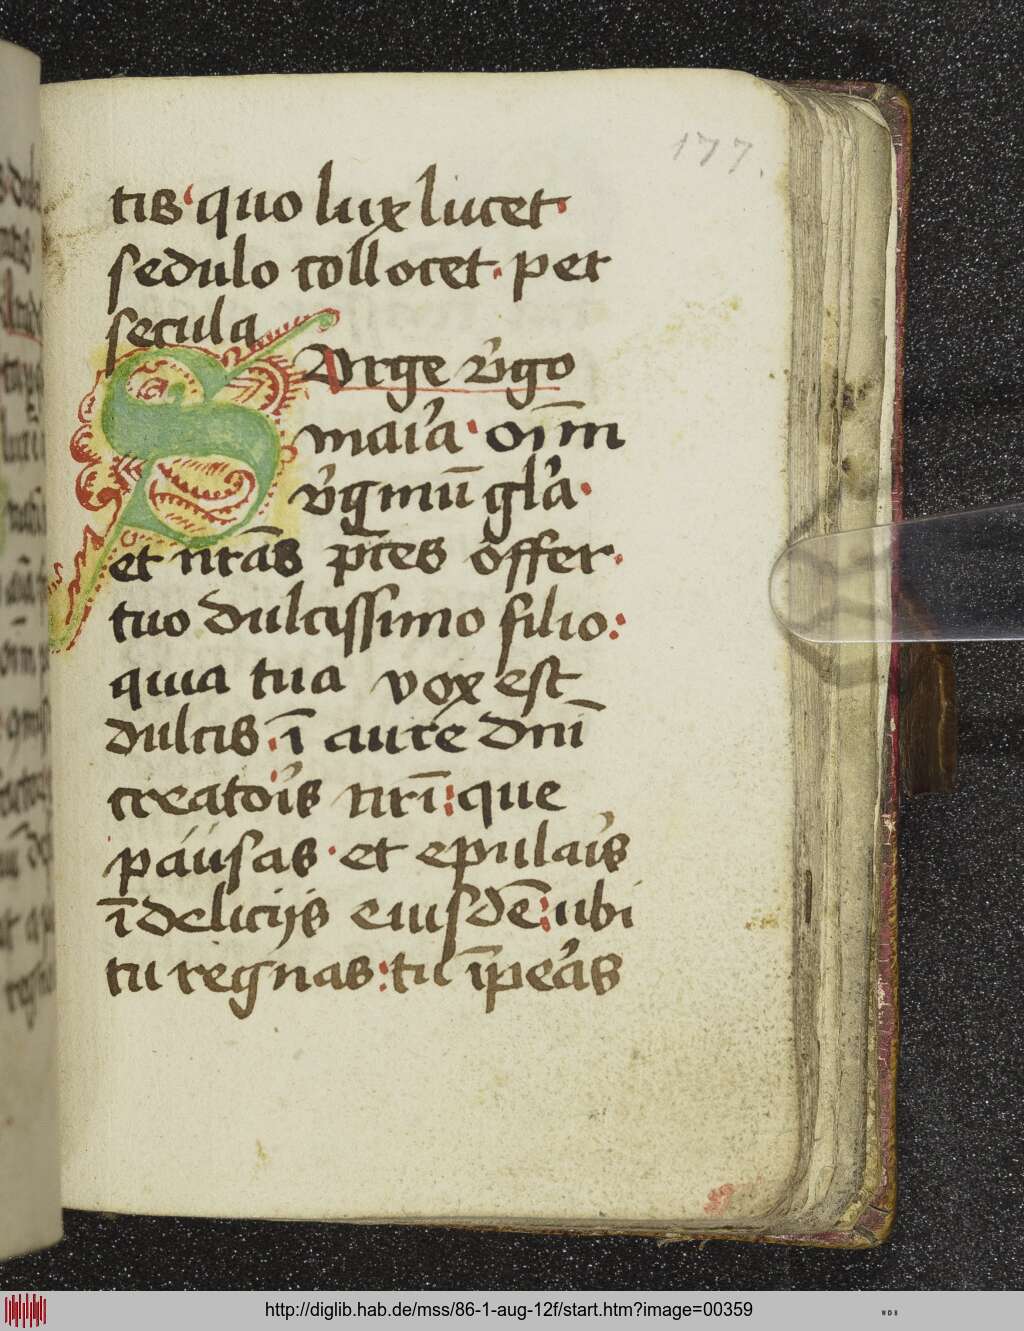 177.
tis quo lux lucet
sedulo collocet. per
secula
Surge v̓go
maria oīm
v̓gīnū gl̓a.
et nr̄as p̄ces offer.
tuo dulcissimo filio:
quia tua vox est
dulcis. ī aure dn̄i
creator̓is nr̄i: que
páusas. et epular̓is
ī delicijs eiusdē: ubi
tu regnas: tu īpe̓as
http://diglib.hab.de/mss/86-1-aug-12f/start.htm?image=00359